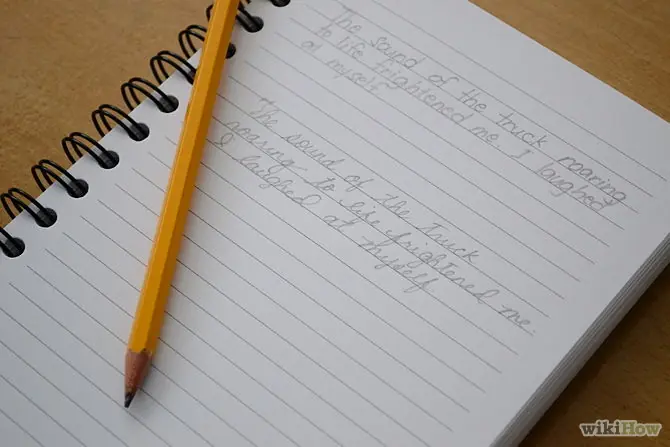 The sound of the truck roaring
to life frightened me. I laughed
at myself
The sound of the truck
roaring to life frightened me.
I laughed at myself
wikiHow